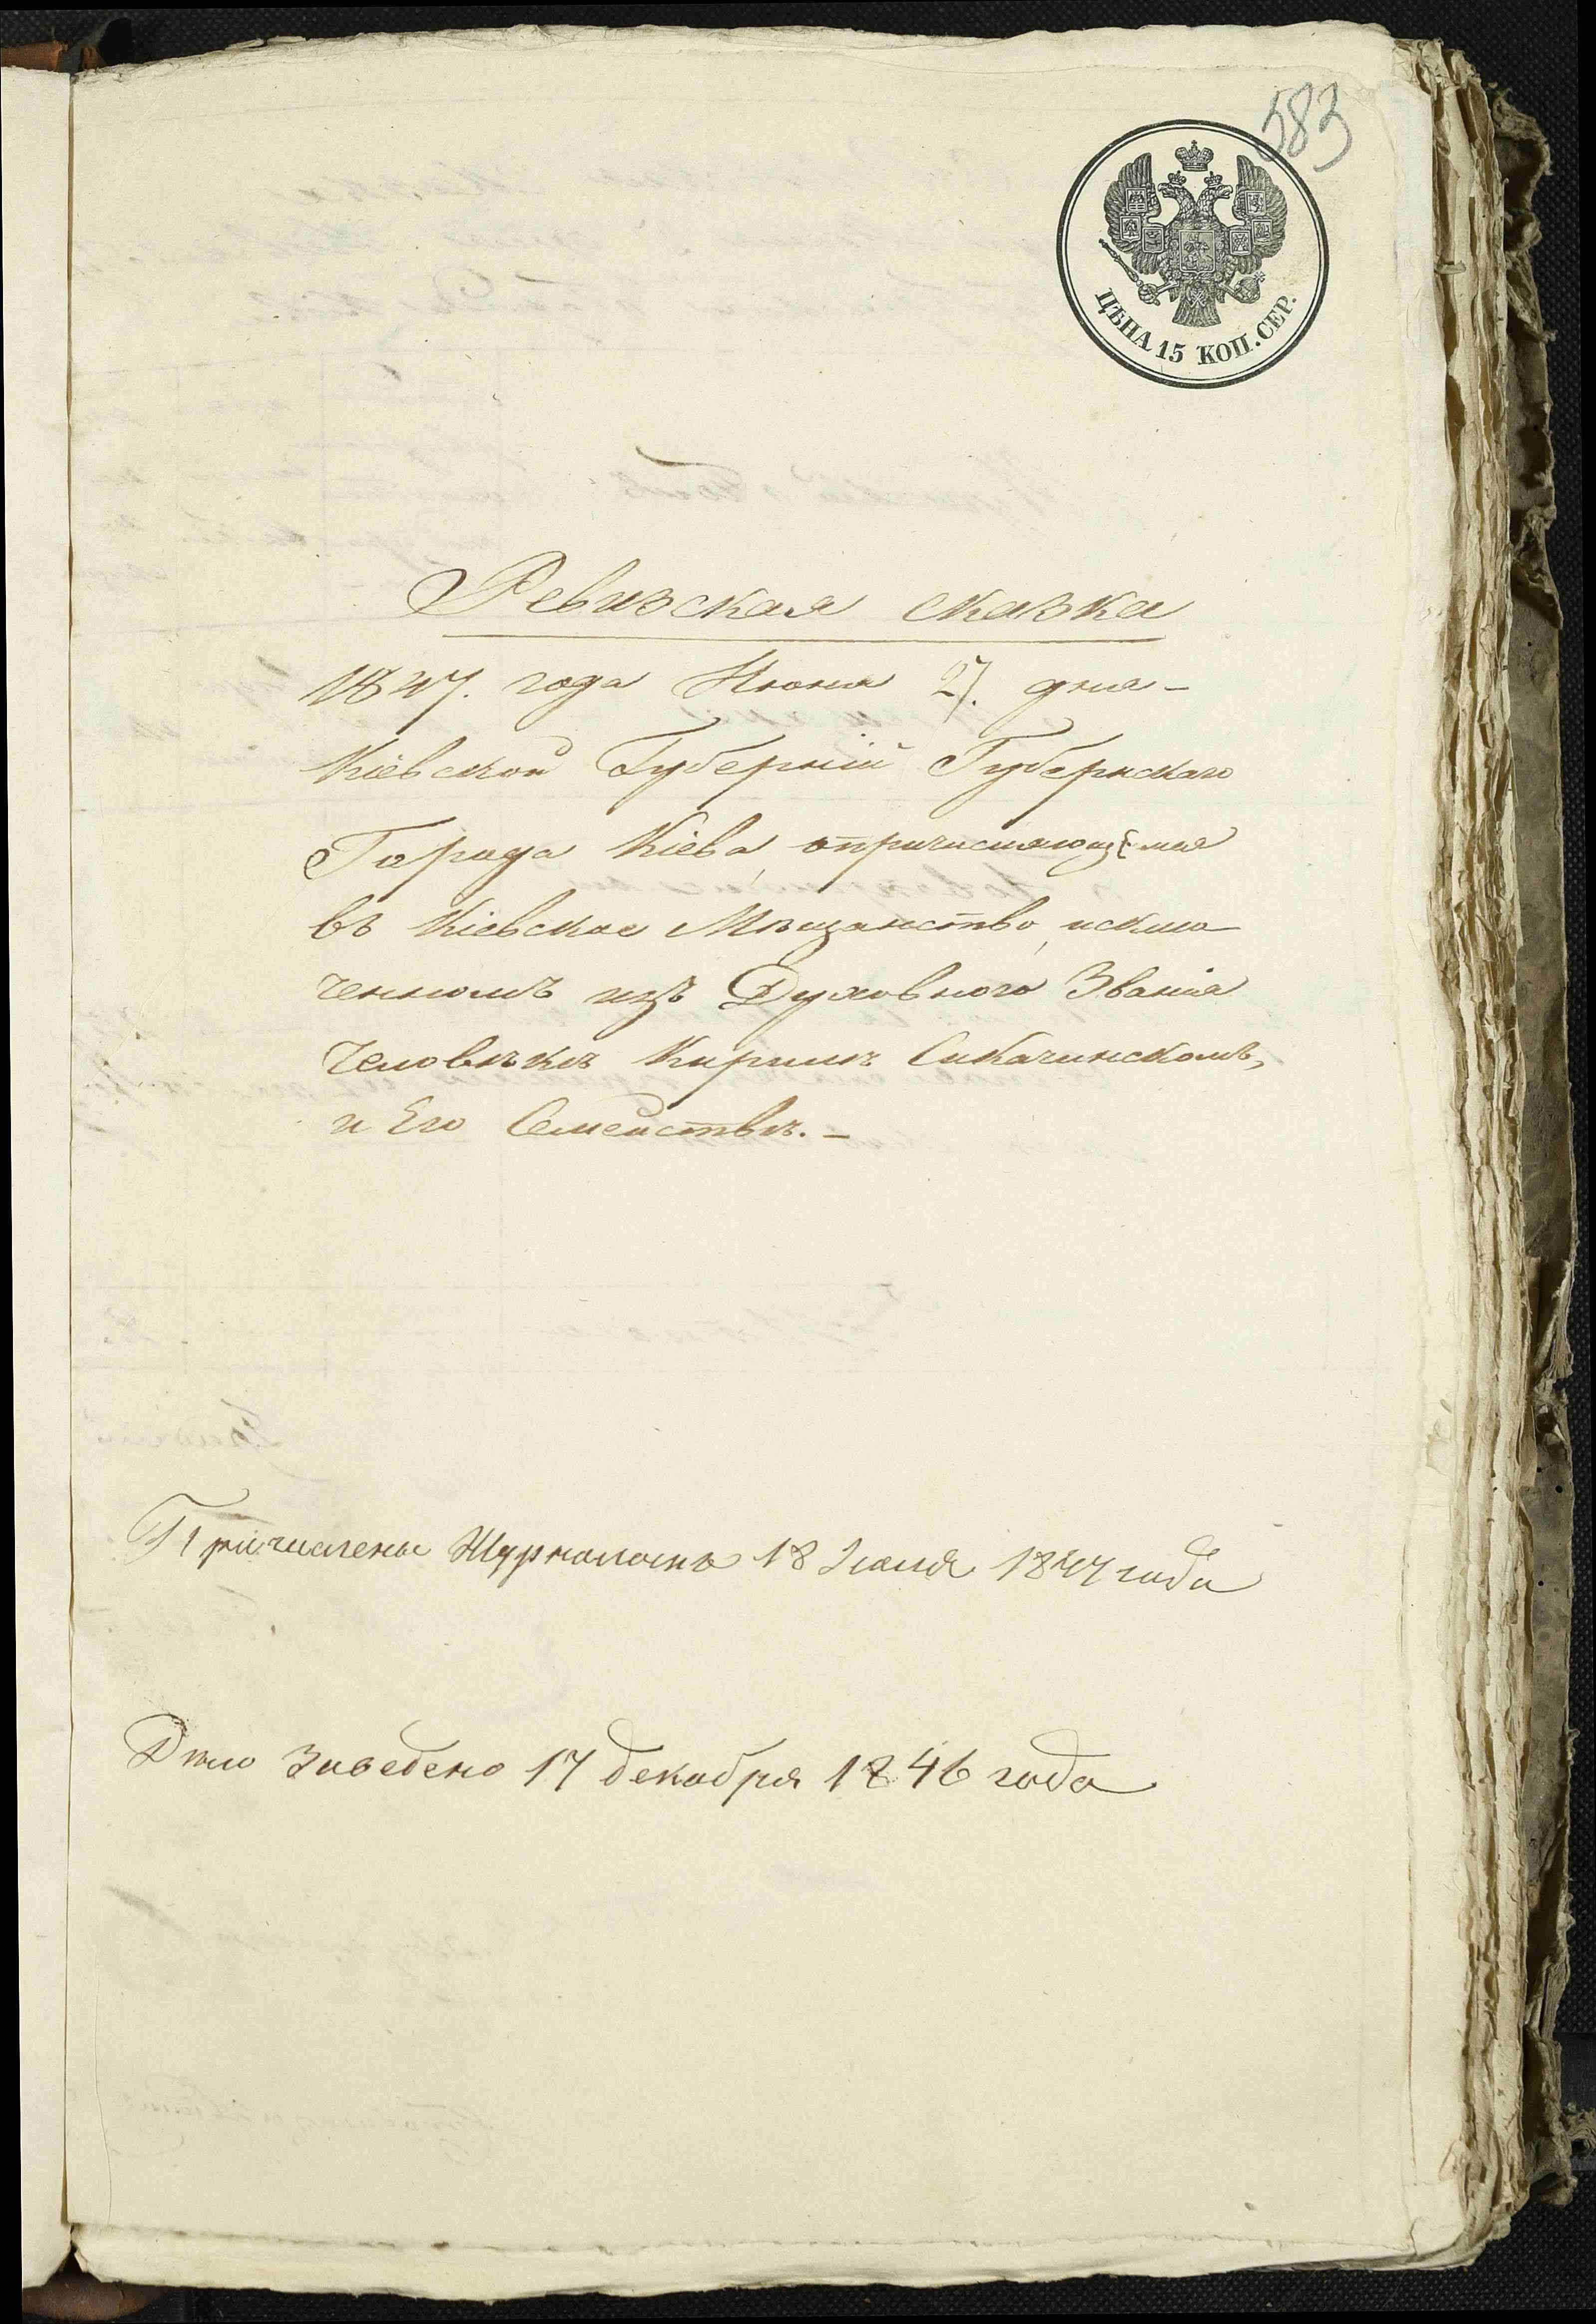 583
ЦѢНА 15 КОП. СЕР.
Ревизская сказка
1847. года Июня 27. дня -
Кіевской Губерніи Губернскаго
Города Кіева, опричисляющемся
въ Кіевское Мѣщанство, исклю
ченномъ изъ Духовного Званія
человѣкѣ Кирилѣ Сикачинскомъ,
и Его Семействѣ. -
Причислены Журналомъ 18 Іюля 1847 года
Дѣло Заведено 17 декабря 1846 года